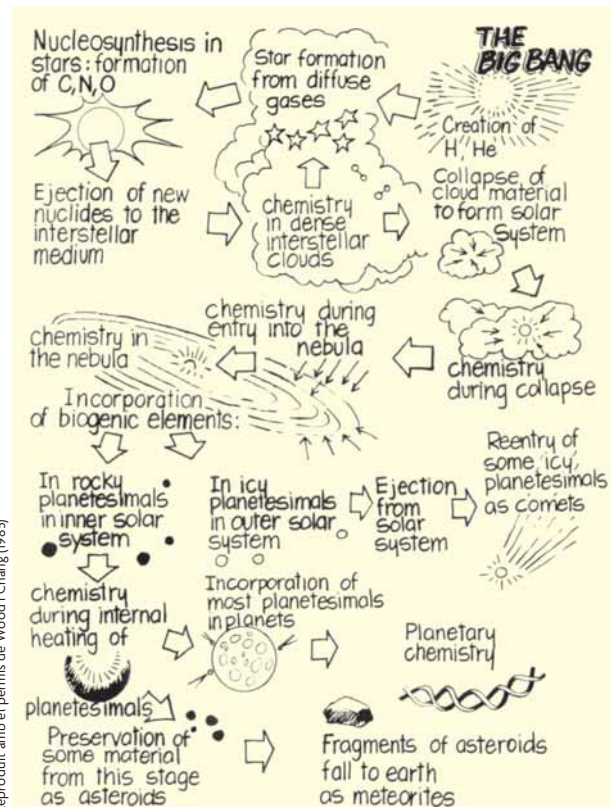 THE
BIG BANG
Creation of
H, He
Star formation
from diffuse
gases
Nucleosynthesis in
stars: formation
of C,N,O
Ejection of new
nuclides to the
interstellar
medium
chemistry
in dense
interstellar
clouds
Collapse of
cloud material
to form solar
System
chemistry
during collapse
chemistry during
entry into the
nebula
chemistry in
the nebula
Incorporation
of biogenic elements:
In rocky
planetesimals
in inner solar
system
In icy
planetesimals
in outer solar
system
Ejection
from
solar
system
Reentry of
some icy
planetesimals
as comets
chemistry
during internal
heating of
planetesimals
Incorporation of
most planetesimals
in planets
Planetary
chemistry
Preservation of
some material
from this stage
as asteroids
Fragments of asteroids
fall to earth
as meteorites
eproduït amb el permís de Wood i Chang (1985)